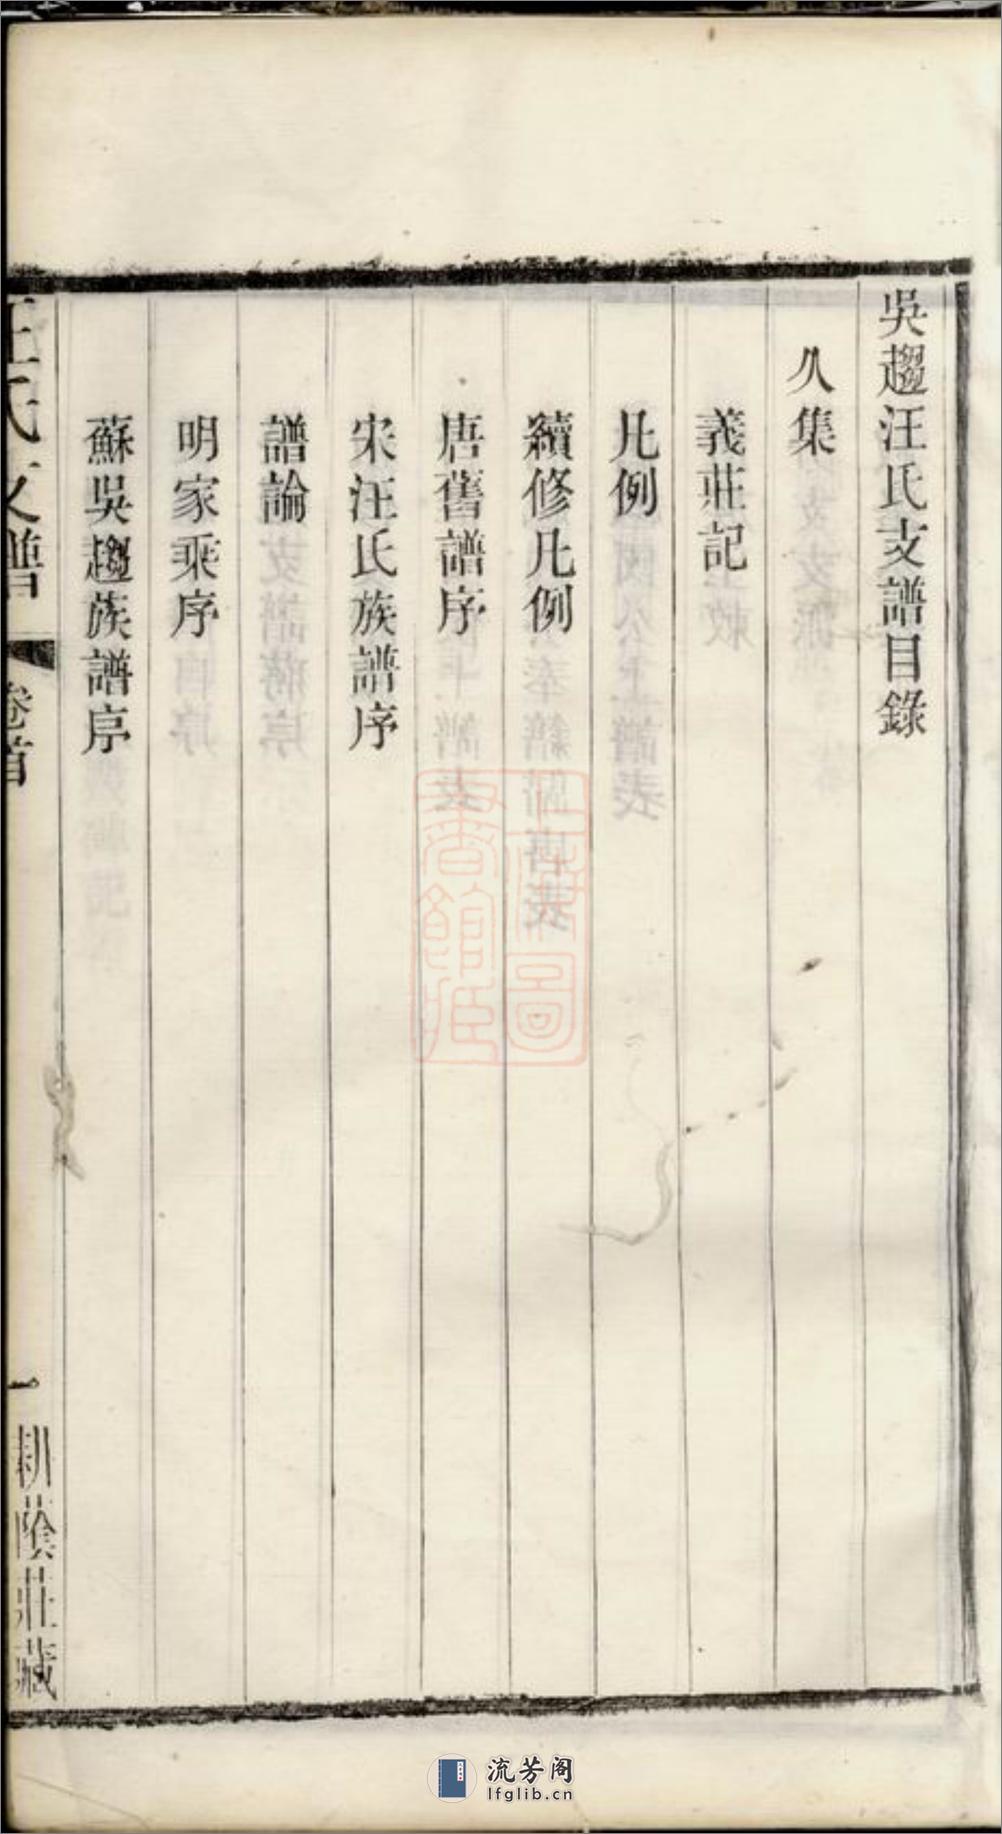 吳趨汪氏支譜目錄
久集
義莊記
凡例
續修凡例
唐舊譜序
宋汪氏族譜序
譜論
明家乘序
蘇吳趨族譜序
汪氏支譜
卷首
一
耕蔭莊藏
上海圖書館藏
流芳阁
lfglib.cn